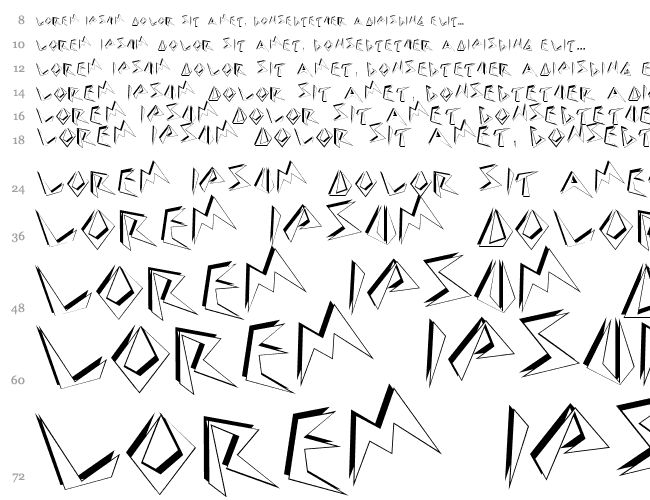 8 LOREM IPSUM DOLOR SIT AMET, CONSECTETUER ADIPISCING ELIT...
10 LOREM IPSUM DOLOR SIT AMET, CONSECTETUER ADIPISCING ELIT...
12 LOREM IPSUM DOLOR SIT AMET, CONSECTETUER ADIPISCING E
14 LOREM IPSUM DOLOR SIT AMET, CONSECTETUER ADI
16 LOREM IPSUM DOLOR SIT AMET, CONSECTETU
18 LOREM IPSUM DOLOR SIT AMET, CONSECT
24 LOREM IPSUM DOLOR SIT AME
36 LOREM IPSUM DOLOR
48 LOREM IPSUM D
60 LOREM IPSU
72 LOREM IPS